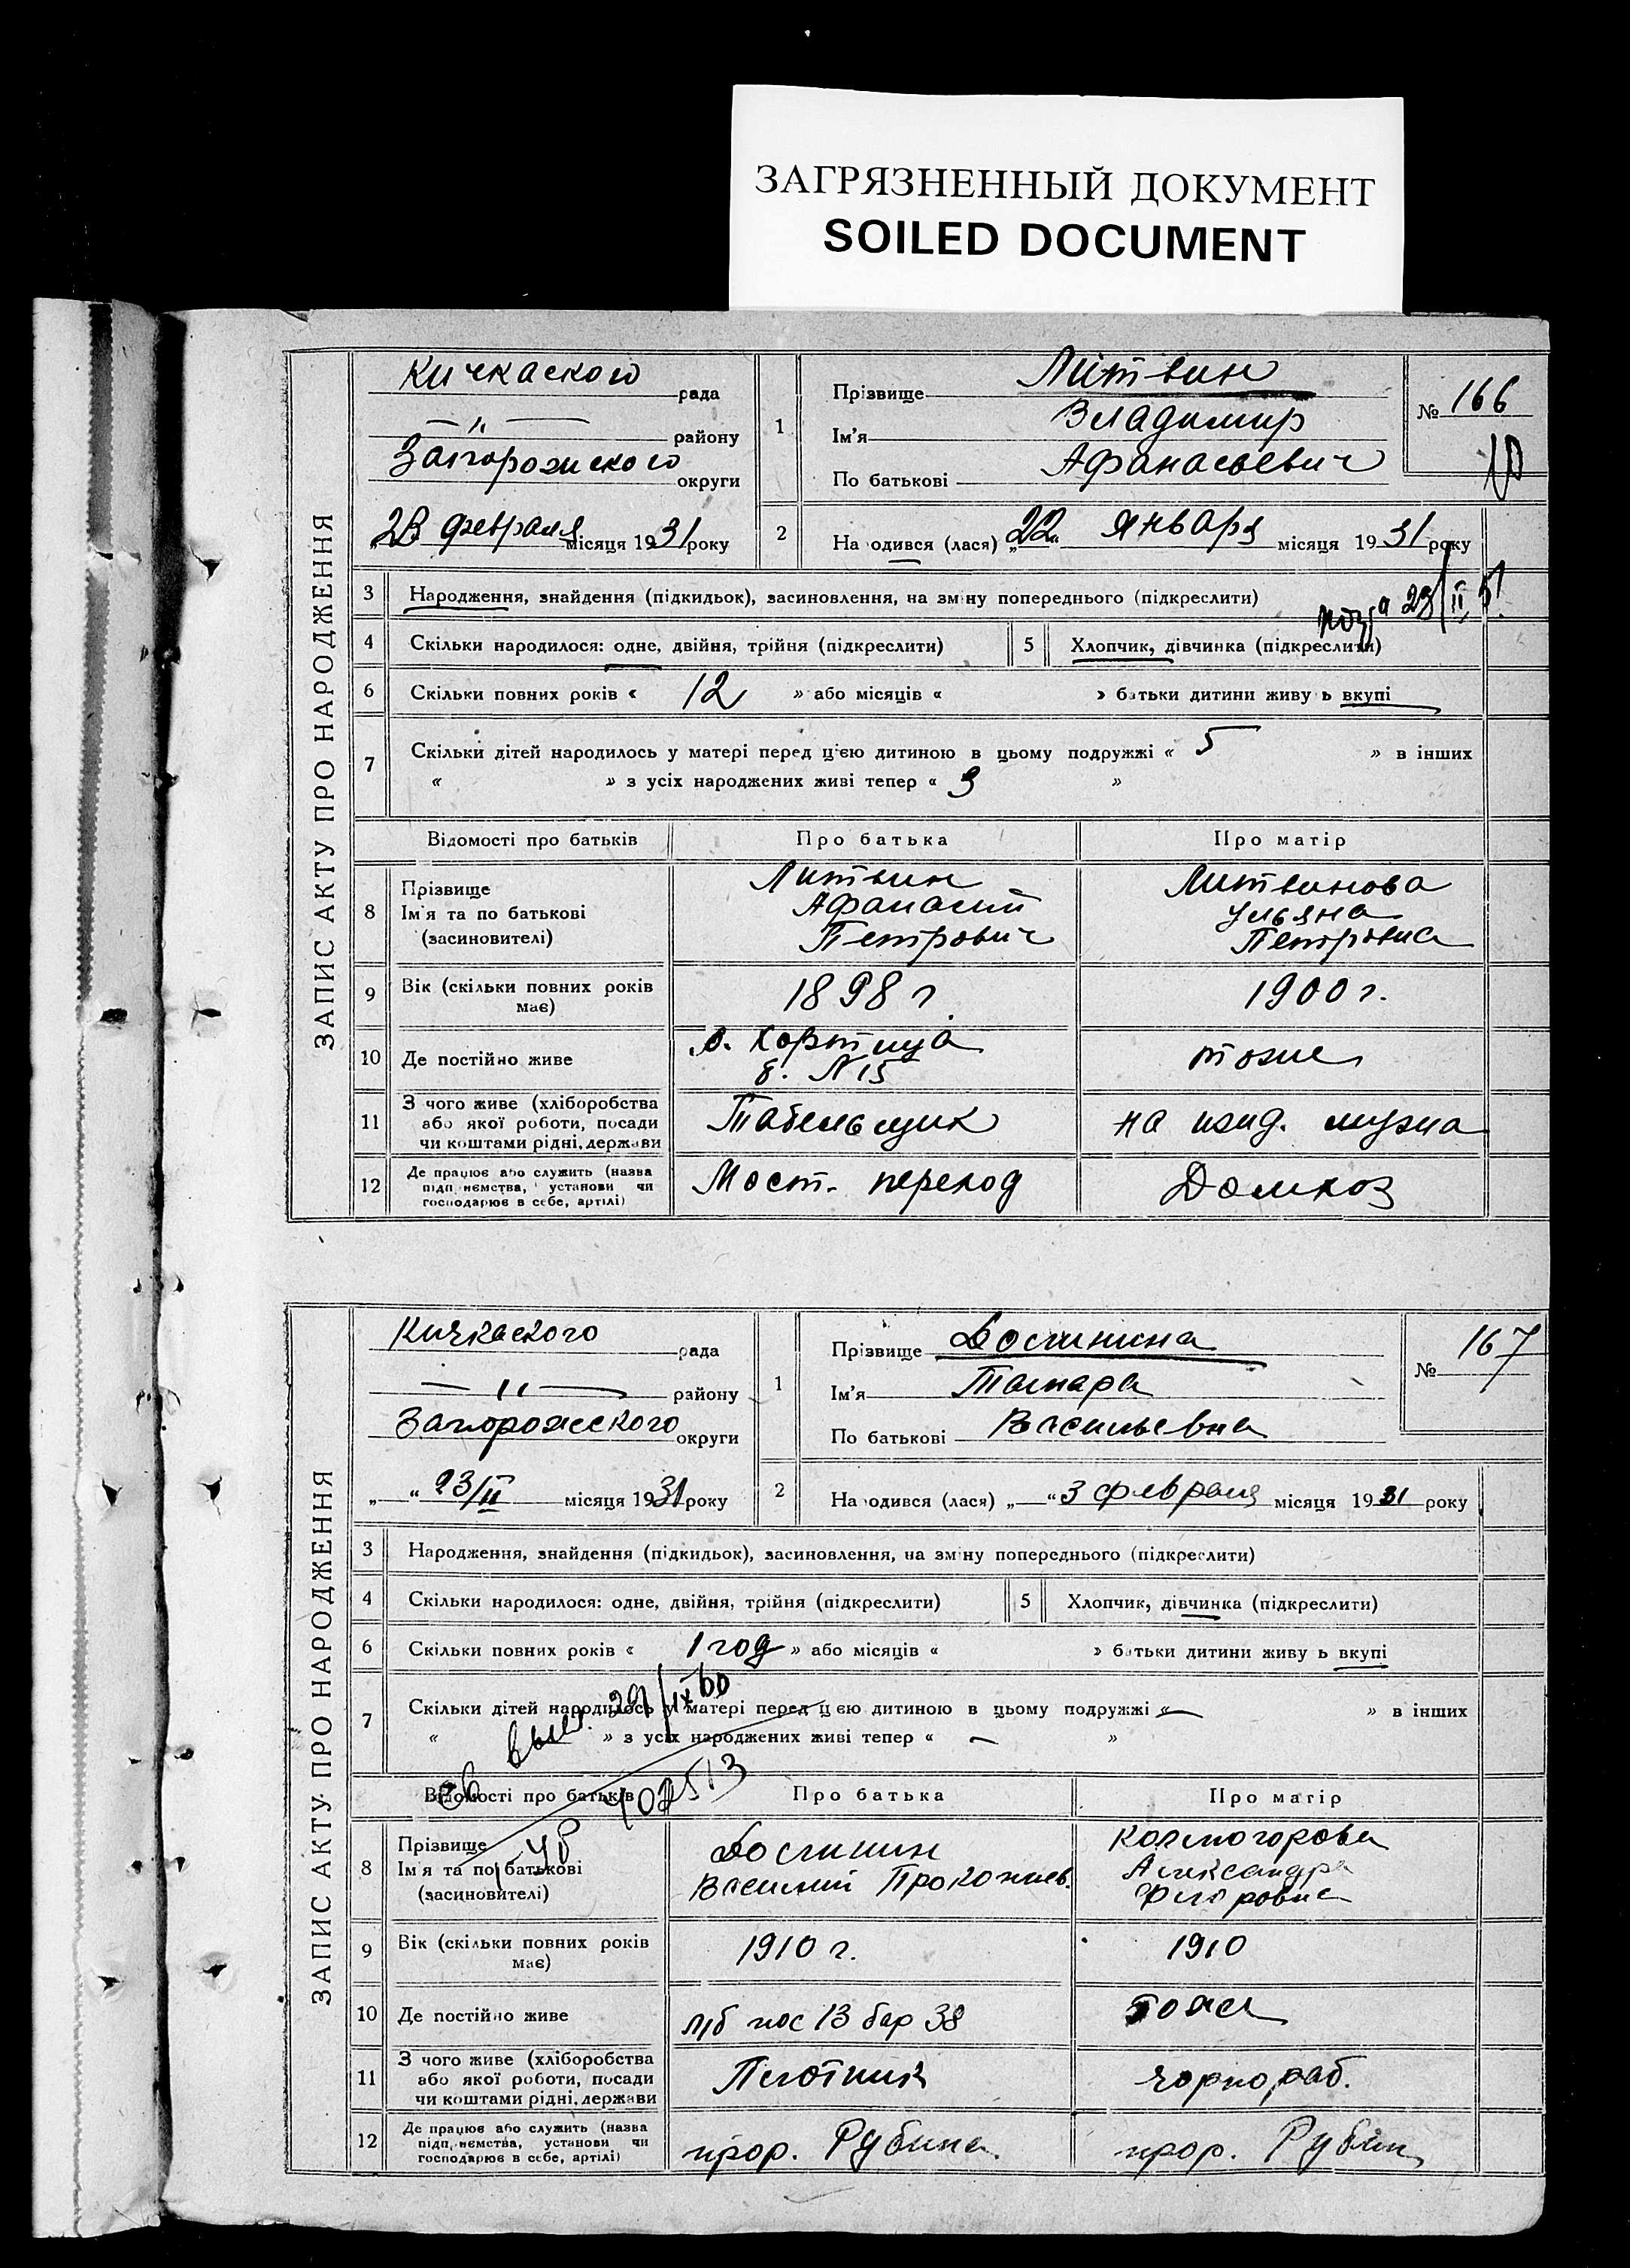 ЗАГРЯЗНЕННЫЙ ДОКУМЕНТ
SOILED DOCUMENT
ЗАПИС АКТУ ПРО НАРОДЖЕННЯ
Кичкаского рада
— " — району
Запорожского округи
„23 февраля місяця 1931 року
1
Прізвище Литвин
Ім'я Владимир
По батькові Афанасьевич
№ 166
2
Народився (лася) „22" января місяця 1931 року
3 Народження, знайдення (підкидьок), засиновлення, на зміну попереднього (підкреслити)
23/II
4 Скільки народилося: одне, двійня, трійня (підкреслити)
5 Хлопчик, дівчинка (підкреслити)
6 Скільки повних років « 12 » або місяців « » батьки дитини живуть вкупі
7 Скільки дітей народилось у матері перед цією дитиною в цьому подружжі « 5 » в інших
« » з усіх народжених живі тепер « 3 »
Відомості про батьків Про батька Про матір
8 Прізвище
Ім'я та по батькові
(засиновителі)
Литвин
Афанасий
Петрович
Литвинова
Ульяна
Петровна
9 Вік (скільки повних років
має)
1898 г.
1900 г.
10 Де постійно живе
о. Хортица
б. N 15
тоже
11 З чого живе (хліборобства
або якої роботи, посади
чи коштами рідні, держави
Табельщик
на ижд. мужа
12 Де працює або служить (назва
підприємства, установи чи
господарює в себе, артілі)
Мост. переход
Домхоз
ЗАПИС АКТУ ПРО НАРОДЖЕННЯ
Кичкаского рада
— " — району
Запорожского округи
„ " 23/II місяця 1931 року
1
Прізвище
Ім'я Тамара
По батькові Васильевна
№ 167
2
Народився (лася) „ " 3 февраля місяця 1931 року
3 Народження, знайдення (підкидьок), засиновлення, на зміну попереднього (підкреслити)
4 Скільки народилося: одне, двійня, трійня (підкреслити)
5 Хлопчик, дівчинка (підкреслити)
6 Скільки повних років « 1 год » або місяців « » батьки дитини живуть вкупі
7 Скільки дітей народилось у матері перед цією дитиною в цьому подружжі « — » в інших
« » з усіх народжених живі тепер « — »
29/IX 60
Відомості про батьків Про батька Про матір
402513
8 Прізвище
Ім'я та по батькові
(засиновителі)
Василий Прокопьев.
Колмогорова
Александра
Егоровна
9 Вік (скільки повних років
має)
1910 г.
1910
10 Де постійно живе
пос 13 бар 38
тоже
11 З чого живе (хліборобства
або якої роботи, посади
чи коштами рідні, держави
Плотник
чорнораб.
12 Де працює або служить (назва
підприємства, установи чи
господарює в себе, артілі)
прор. Рубина
прор. Рубин